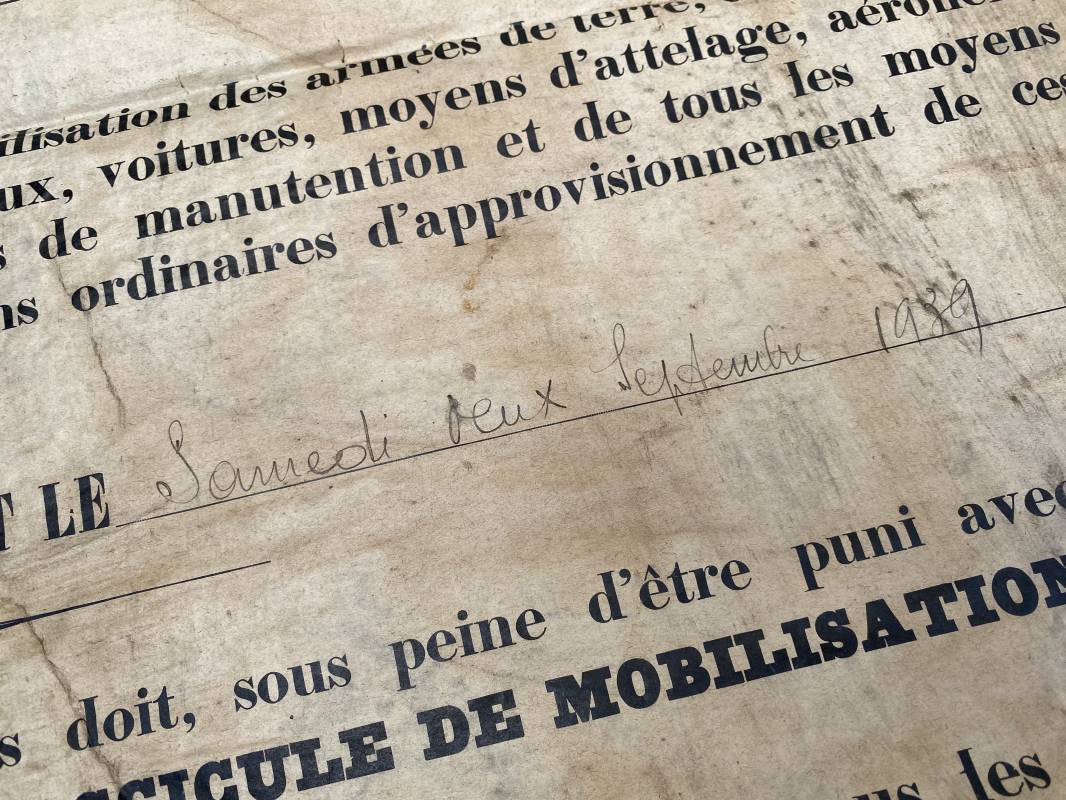 ilisation des armées de terre,
ux, voitures, moyens d'attelage,
s de manutention et de tous les moyens
ns ordinaires d'approvisionnement de ces
T LE Samedi deux Septembre 1939
s doit, sous peine d'être puni avec
SCICULE DE MOBILISATION
us les